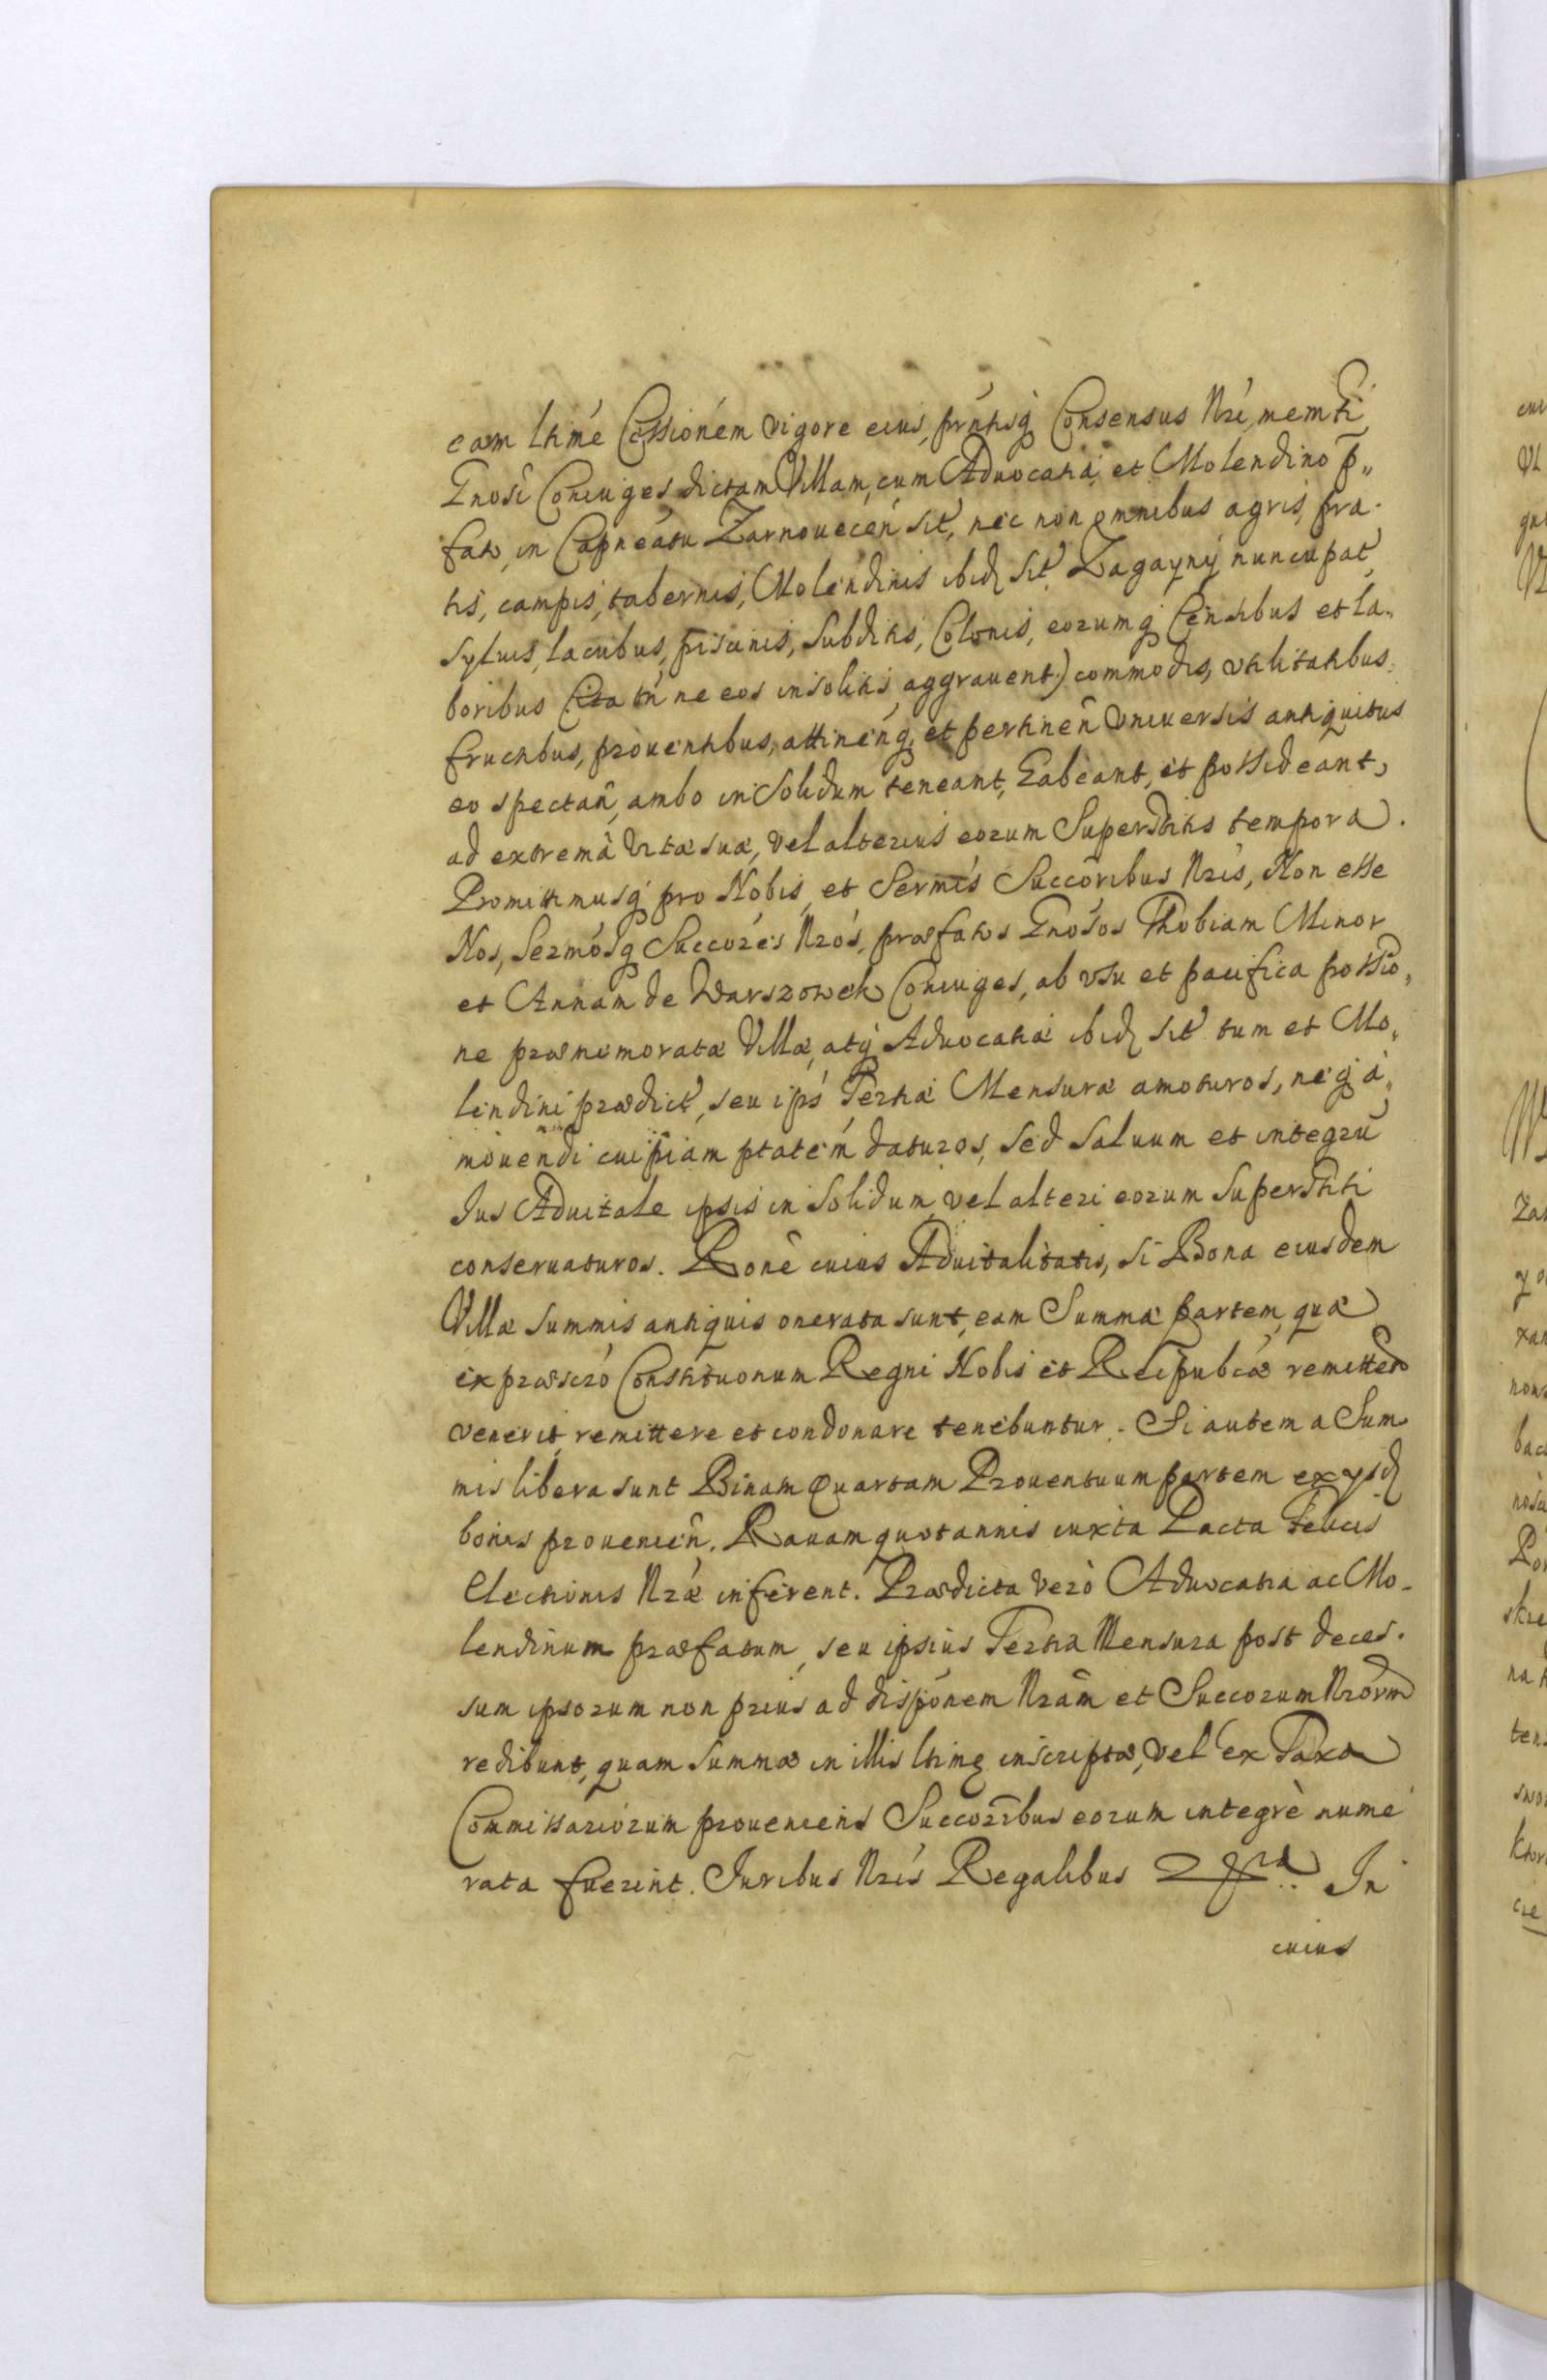 eam lttime Cessionem vigore eius, prntisq Consensus Nri, memti
Gnosi Coniuges dictam Villam, cum Advocatia, et Molendino p„
fato, in Capneatu Zarnoueceń sit, nec non omnibus agris, pra-
tis, campis, tabernis, Molendinis ibid sit Zagayny nuncupat,
syluis, lacubus, piscinis, Subditis, Colonis, eorumq Censibus et la„
boribus (ita tn ne eos insolitis aggrauent) commodis, vtilitatibus,
fructibus, prouentibus, attinenq, et pertineñ vniuersis antiquitus
eo spectań, ambo in Solidum teneant, habeant, et possideant,
ad extrema vitæ suæ, vel alterius eorum Superstitis tempora.
Promittimusq pro Nobis, et Sermis Succoribus Nris, Non esse
Nos, Sermosq Succores Nros, præfatos Gnosos Thobiam Minor
et Annam de Warszowek Coniuges, ab vsu et pacifica possio„
ne prænemoratæ Villæ, atq Aduocatiæ ibid sit tum et Mo„
lendini prædict, seu ips Tertiæ Mensuræ amoturos, neq a„
mouendi cuipiam ptatem daturos, sed saluum et integrū
Jus Aduitale ipsis in Solidum, vel alteri eorum Superstiti
conseruaturos. Rone cuius Aduitalitatis, si Bona eiusdem
Villæ summis antiquis onerata sunt, eam Summæ partem, quæ
ex præscro Constituonum Regni Nobis et Reipublcæ remittedo
venerit, remittere et condonare tenebuntur. Si autem a Sum
mis libera sunt Binam Quartam Prouentuum partem ex ysd
bonis proueneiñ. Rauam quotannis iuxta Pacta Felicis
Electionis Nræ inferent. Prædicta vero Aduocatia ac Mo-
lendinum præfatum, seu ipsius Tertia Mensura post deces-
sum ipsorum non prius ad disponem Nram et Succorum Nrorum
redibunt, quam summæ in illis lttime inscriptæ, vel ex Taxa
Commissariorum proueniens Succoribus eorum integrè nume
rata fuerint. Juribus Nris Regalibus In
cuius